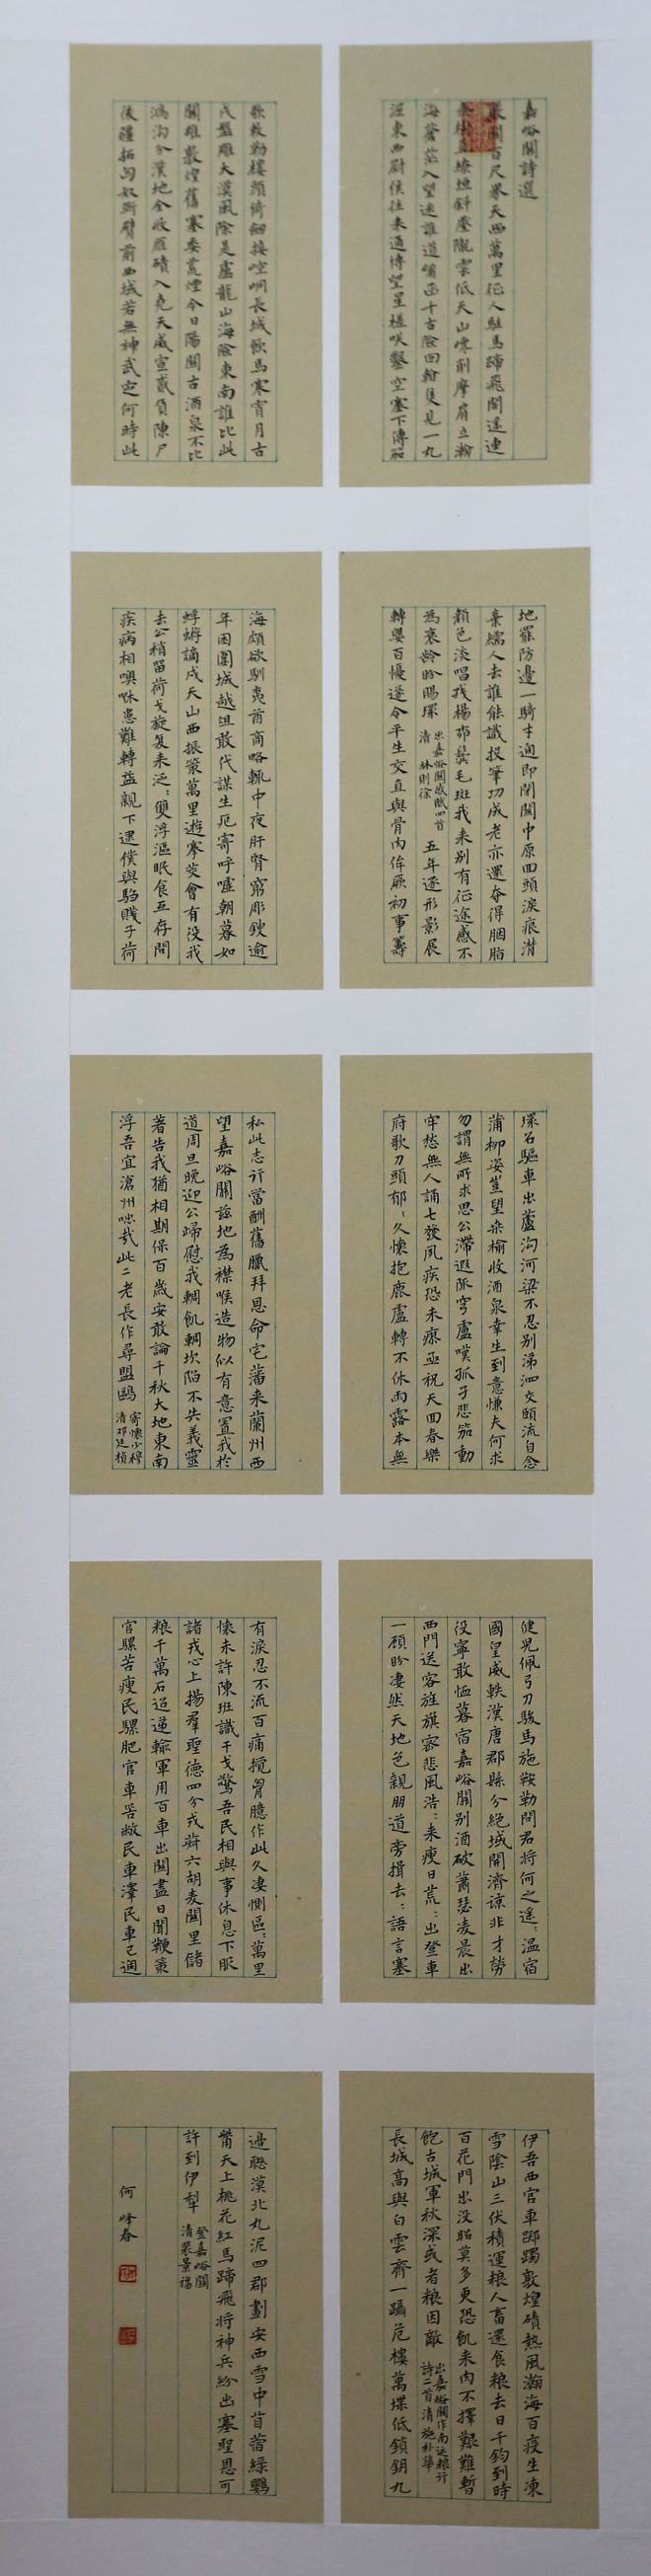 嘉峪關詩選
嚴關百尺界天西萬里征人駐馬蹄飛閣遥連
秦樹直繚垣斜壓隴雲低天山巉削摩肩立瀚
海蒼茫入望迷誰道崤函千古險回輪隻見一丸
泥東西尉侯往來通博望星槎咲鑿空塞下傳笳
歌敕勒樓頭倚劍接崆峒長城飲馬寒宵月古
戍盤雕大漠風除是盧龍山海險東南誰比此
關雄敦煌舊塞委荒煙今日陽關古酒泉不比
鴻溝分漢地全收雁磧入堯天威宣貳負陳尸
後疆拓匈奴斷臂前西域若無神武定何時此
地罷防邊一騎才通即閉關中原回頭淚痕潸
棄繻人去誰能識投筆功成老亦還奪得胭脂
顏色淡唱殘楊柳鬢毛斑我來别有征途感不
為衰齡盼賜環 出嘉峪關感賦四首 清 林則徐 五年逐形影展
轉嬰百憂遂令平生交直與骨肉侔厥初事籌
海頗欲馴夷酋商略輒中夜肝腎窮彫鎪逾
年困圍城越俎敢代謀生死寄呼噓朝暮如
蜉蝣謫戍天山西振策萬里遊搴茭會有役我
去公稍留荷戈旋复来泛:雙浮漚眠食互存問
疾病相噢咻患難轉益親下逮僕與騶賤子荷
環召驅車出蘆沟河梁不忍别涕泗交頤流自念
蒲柳姿豈望桑榆收酒泉幸生到意慊夫何求
勿謂無所求思公滯遐陬穹廬嘆孤子悲笳動
牢愁無人誦七發夙疾恐未瘳亟祝天回春樂
府歌刀頭郁:久懷抱鹿盧轉不休雨露本無
私此志行當酬舊臘拜恩命宅藩来蘭州西
望嘉峪關兹地為襟喉造物似有意置我於
道周旦晚迎公歸慰我輖飢輖坎陷不失義靈
蓍告我猶相期保百歲安敢論千秋大地東南
浮吾宜滄州咄哉此二老長作尋盟鷗 寄懷少穆 清鄧廷楨
健兒佩弓刀駿馬施鞍勒問君将何之遥:温宿
國皇威軼漢唐郡縣分絕域開濟諒非才勞
役寧敢恤暮宿嘉峪關别酒破蕭瑟凌晨出
西門送客旌旗密悲風浩:来瘦日荒:出登車
一顧盼凄然天地色親朋道旁揖去:語言塞
有淚忍不流百痛攪胷臆作此久凄惻區:萬里
懷未許陳班識干戈驚吾民相與事休息下服
諸戎心上揚羣聖德四分戎蒋六胡麦關里儲
粮千萬石迢遞輸軍用百車出關盡日聞鞭策
官騾苦瘦民騾肥官車苦敝民車澤民車已過
伊吾西官車躑躅敦煌磧熱風瀚海百疫生凍
雪陰山三伏積運粮人畜還食粮去日千鈞到時
百花門出沒昭莫多更恐飢来肉不擇艱難暫
飽古城軍秋深或者粮因敵 出嘉峪關作南运粮行 詩二首清施补華
長城高與白雲齊一躡危樓萬堞低鎖鑰九
邊聯漠北丸泥四郡劃安西雪中苜蓿綠鸚
觜天上桃花紅馬蹄飛将神兵紛出塞聖恩可
許到伊犁 登嘉峪關 清裴景福
何峰春